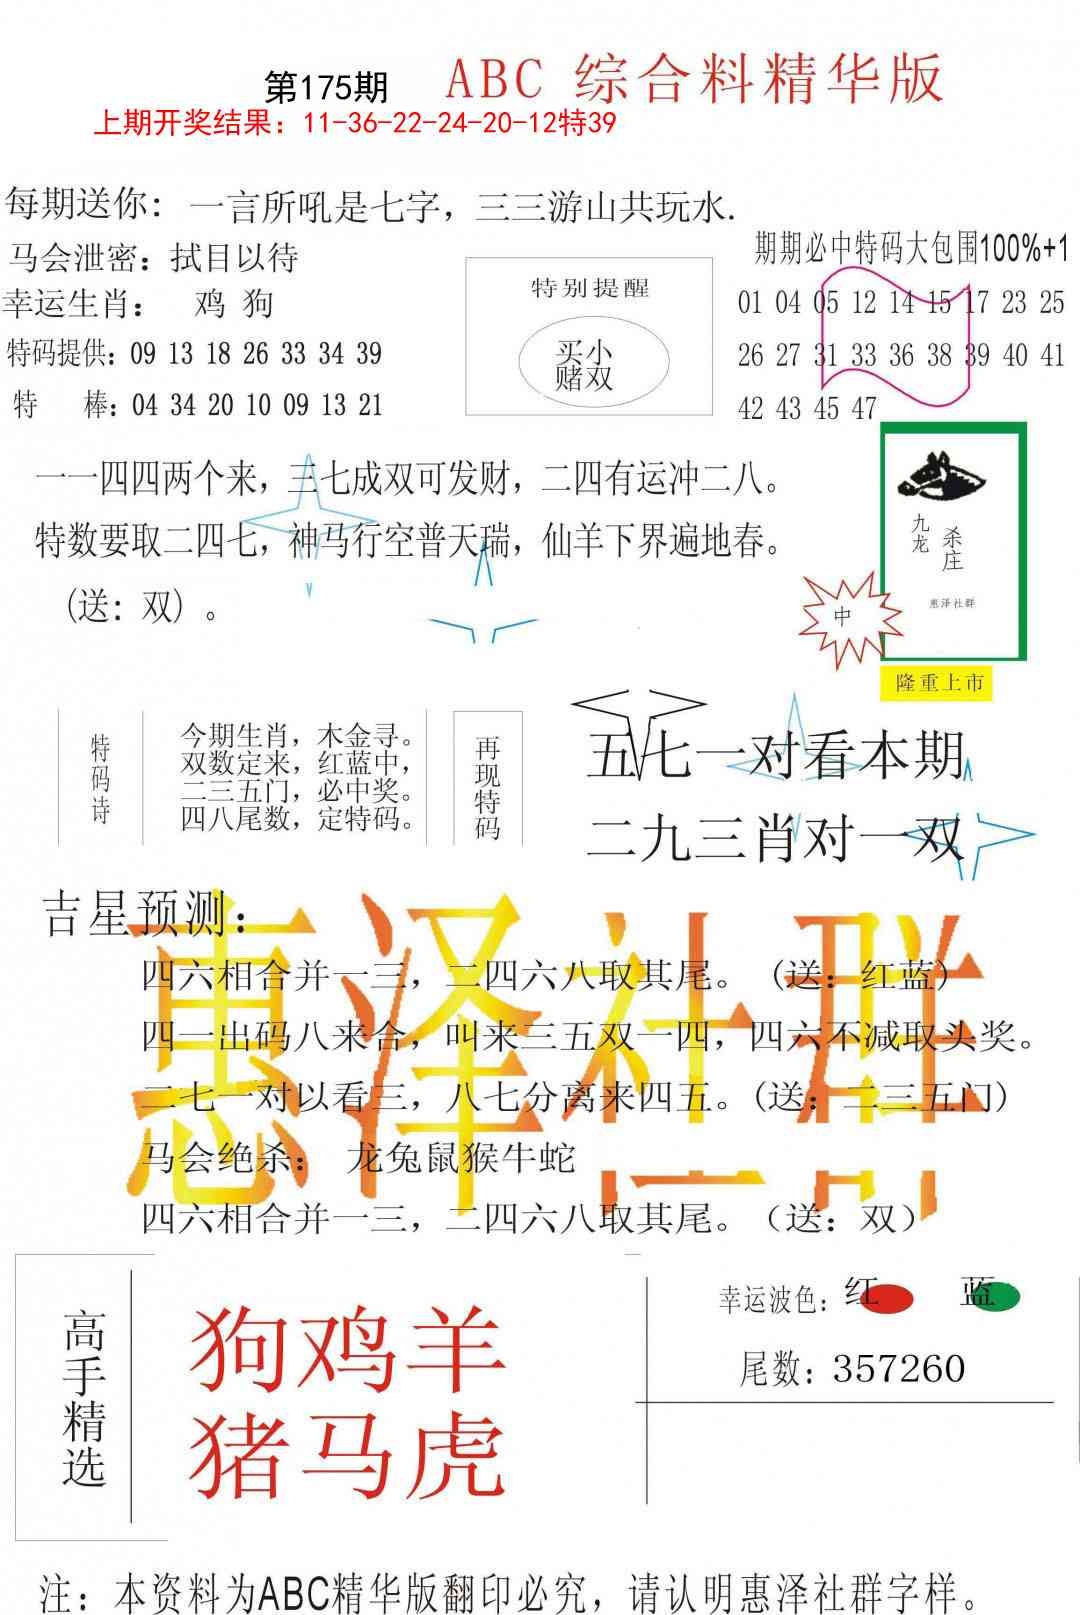 第175期 ABC 综合料精华版
上期开奖结果：11-36-22-24-20-12特39
每期送你：一言所吼是七字，三三游山共玩水.
马会泄密：拭目以待
幸运生肖： 鸡 狗
特码提供：09 13 18 26 33 34 39
特 棒：04 34 20 10 09 13 21
特别提醒
买小
赌双
期期必中特码大包围100%+1
01 04 05 12 14 15 17 23 25
26 27 31 33 36 38 39 40 41
42 43 45 47
一一四四两个来，三七成双可发财，二四有运冲二八。
特数要取二四七，神马行空普天瑞，仙羊下界遍地春。
(送：双) 。
九龙
杀庄
惠泽社群
中
隆重上市
特码诗
今期生肖，木金寻。
双数定来，红蓝中，
二三五门，必中奖。
四八尾数，定特码。
再现特码
五七一对看本期
二九三肖对一双
吉星预测：
惠泽社群
四六相合并一三，二四六八取其尾。（送：红蓝）
四一出码八来合，叫来三五双一四，四六不减取头奖。
二七一对以看三，八七分离来四五。(送：二三五门)
马会绝杀： 龙兔鼠猴牛蛇
四六相合并一三，二四六八取其尾。（送：双）
高手精选
狗鸡羊
猪马虎
幸运波色：红 蓝
尾数：357260
注：本资料为ABC精华版翻印必究，请认明惠泽社群字样。